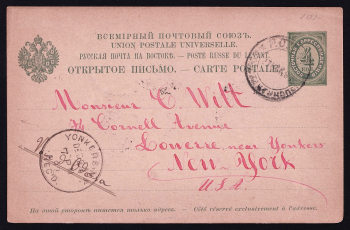 ВСЕМІРНЫЙ ПОЧТОВЫЙ СОЮЗЪ.
UNION POSTALE UNIVERSELLE.
РУССКАЯ ПОЧТА НА ВОСТОКѢ. — POSTE RUSSE DU LEVANT.
ОТКРЫТОЕ ПИСЬМО. — CARTE POSTALE.
4
Monsieur C. Witt
34 Cornell Avenue
Lowerre near Yonkers
New York
U.S.A.
YONKERS
REC'D.
На этой сторонѣ пишется только адресъ. — Côté réservé exclusivement à l'adresse.